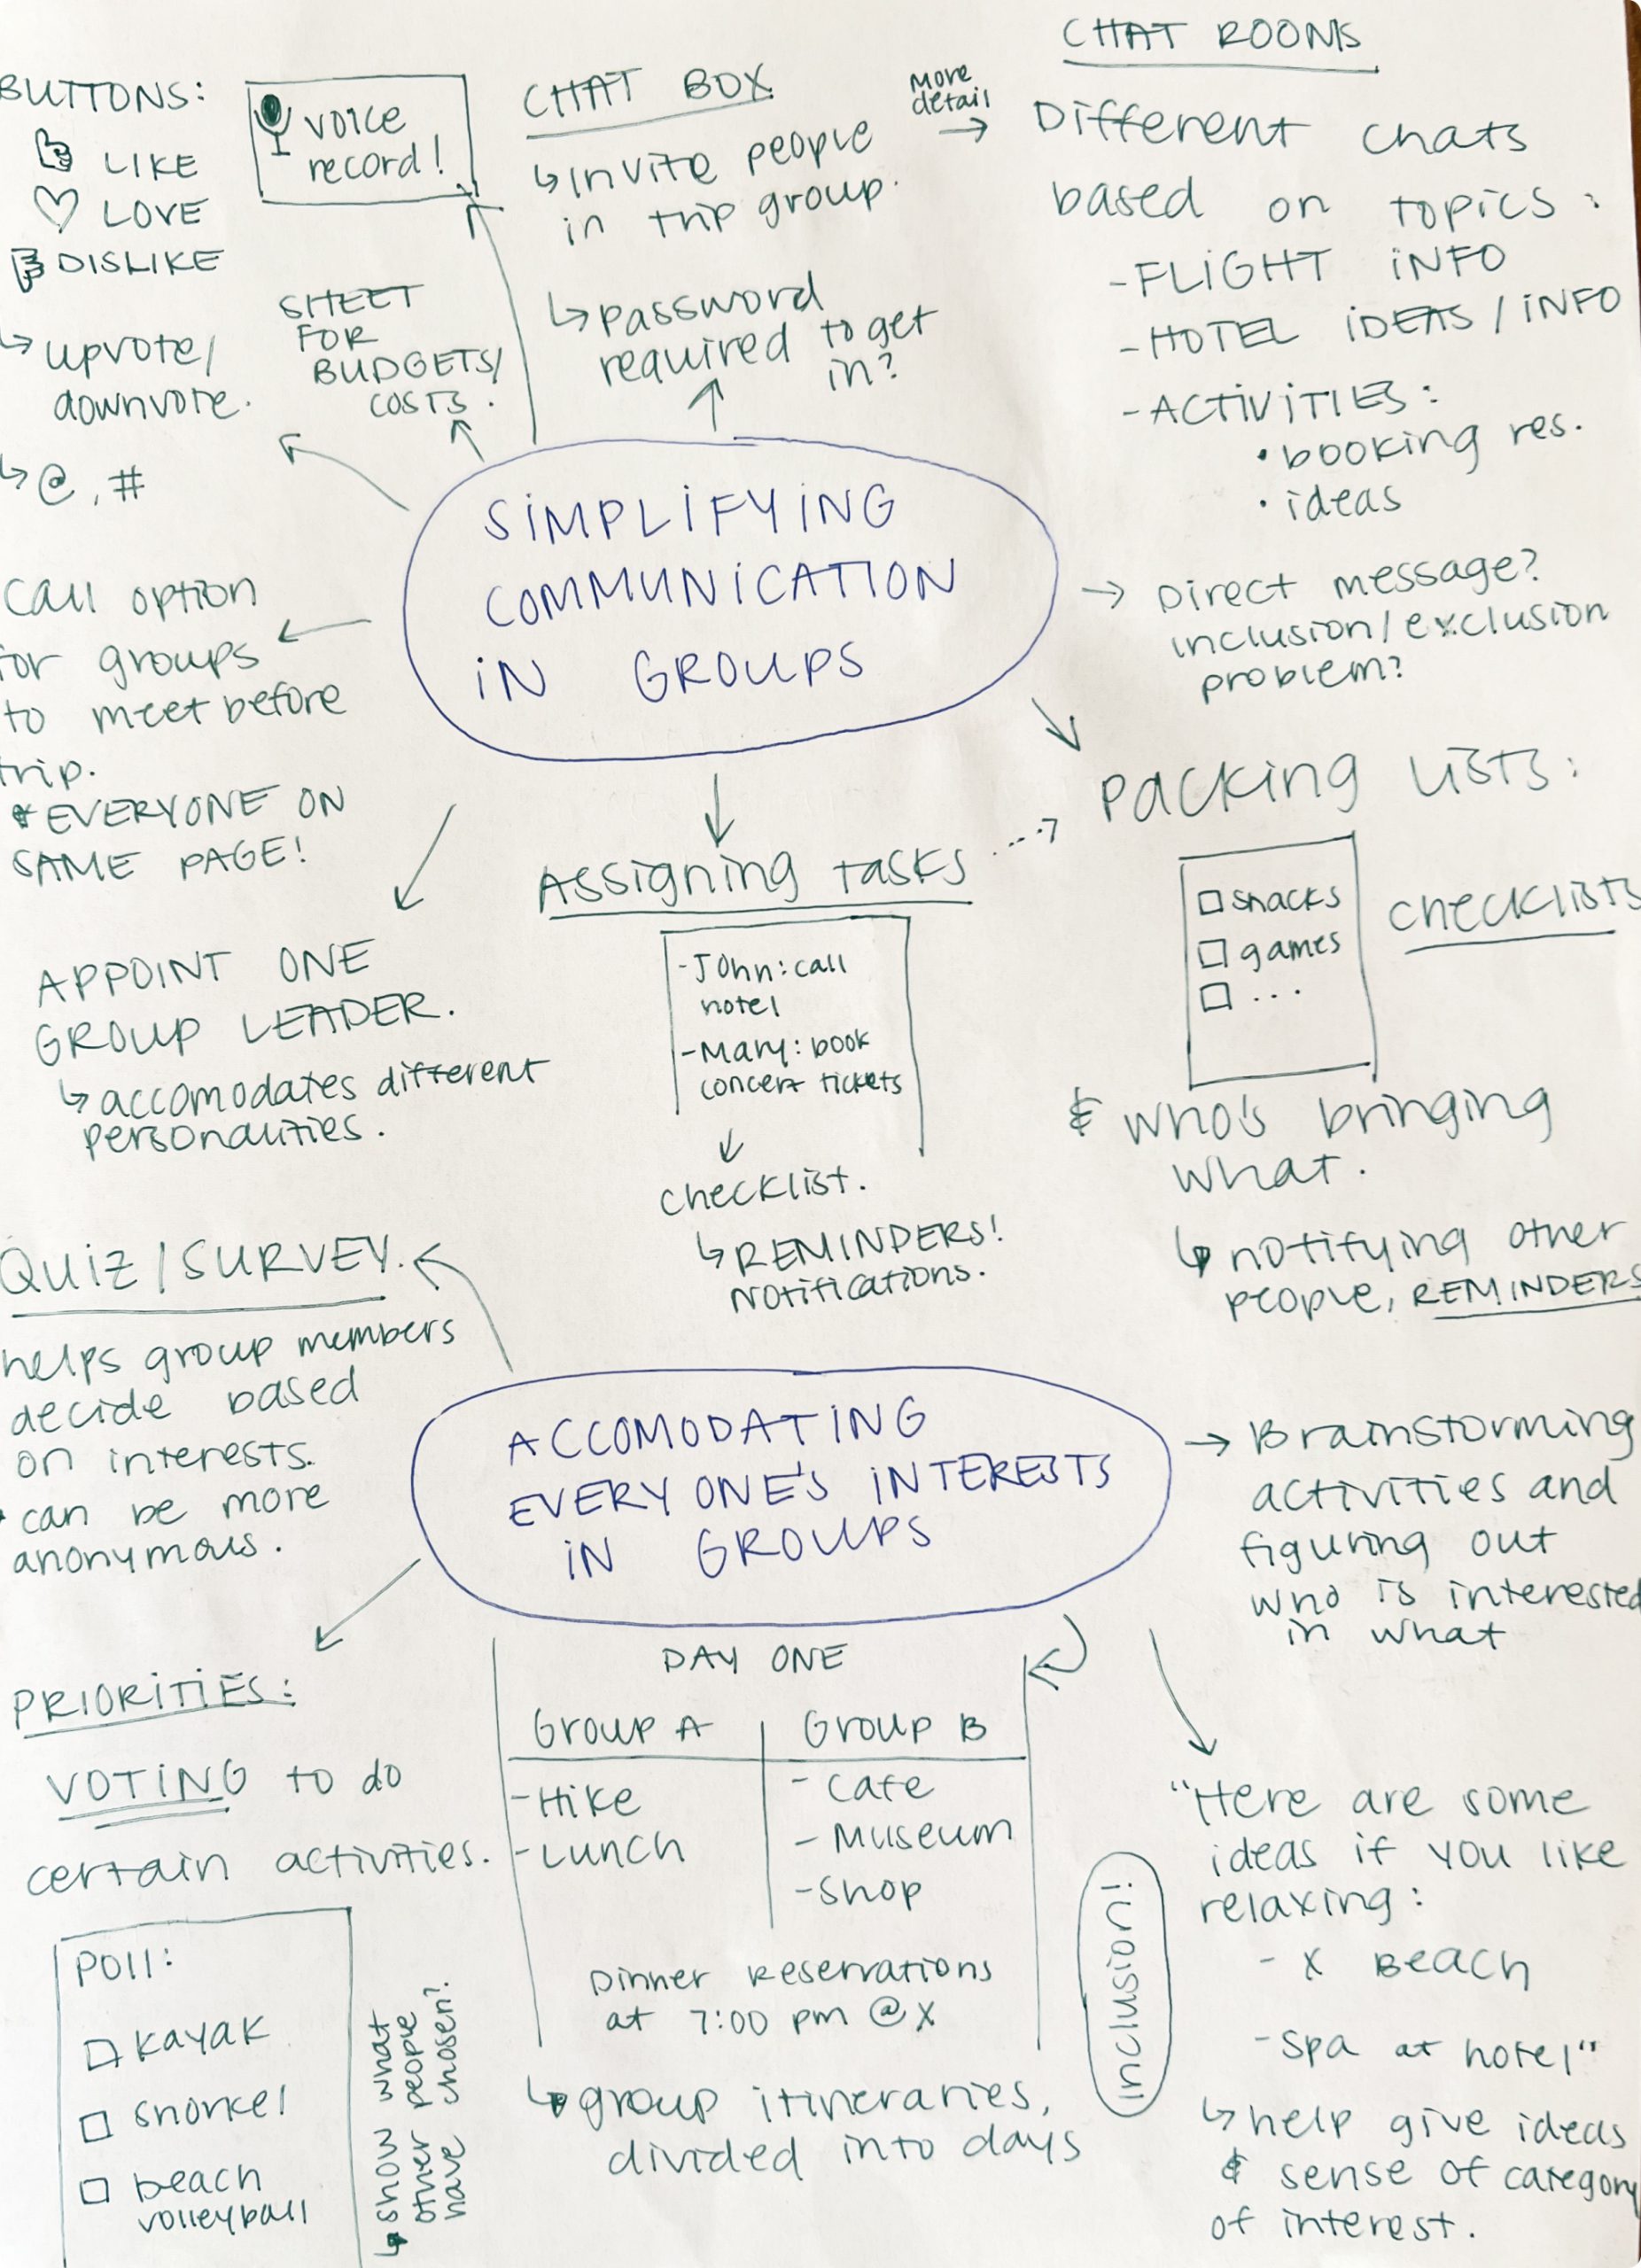 BUTTONS:
LIKE
LOVE
DISLIKE
↳ upvote/
downvote.
↳ @, #
voice
record!
SHEET
FOR
BUDGETS/
COSTS.
CHAT BOX
↳ invite people
in trip group.
↳ password
required to get
in?
More
detail
→
CHAT ROOMS
Different chats
based on topics:
- FLIGHT INFO
- HOTEL IDEAS / INFO
- ACTIVITIES:
• booking res.
• ideas
SIMPLIFYING
COMMUNICATION
IN GROUPS
→ Direct message?
inclusion/exclusion
problem?
Call option
for groups
to meet before
trip.
* EVERYONE ON
SAME PAGE!
APPOINT ONE
GROUP LEADER.
↳ accomodates different
personalities.
Assigning tasks
- John: call
hotel
- Mary: book
concert tickets
checklist.
↳ REMINDERS!
Notifications.
Packing Lists:
snacks
games
...
checklists
& who's bringing
what.
↳ notifying other
people, REMINDERS
QUIZ / SURVEY.
helps group members
decide based
on interests.
can be more
anonymous.
ACCOMODATING
EVERYONE'S INTERESTS
IN GROUPS
→ Brainstorming
activities and
figuring out
who is interested
in what
PRIORITIES:
VOTING to do
certain activities.
Poll:
kayak
snorkel
beach
volleyball
↳ show what
other people
have chosen?
DAY ONE
Group A
Group B
- Hike
- Lunch
- Cafe
- Museum
- Shop
Dinner Reservations
at 7:00 pm @ X
↳ group itineraries,
divided into days
Inclusion!
"Here are some
ideas if you like
relaxing:
- X Beach
- Spa at hotel"
↳ help give ideas
& sense of category
of interest.